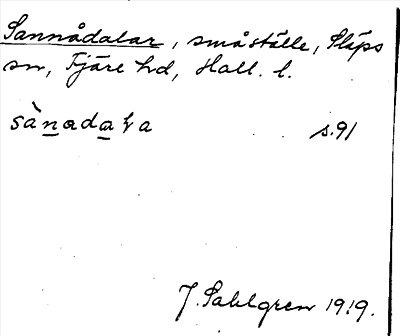 Sannådalar, småställe, Släps
sn, Fjäre hd, Hall. l.
sànadała s.91
J. Sahlgren 1919.